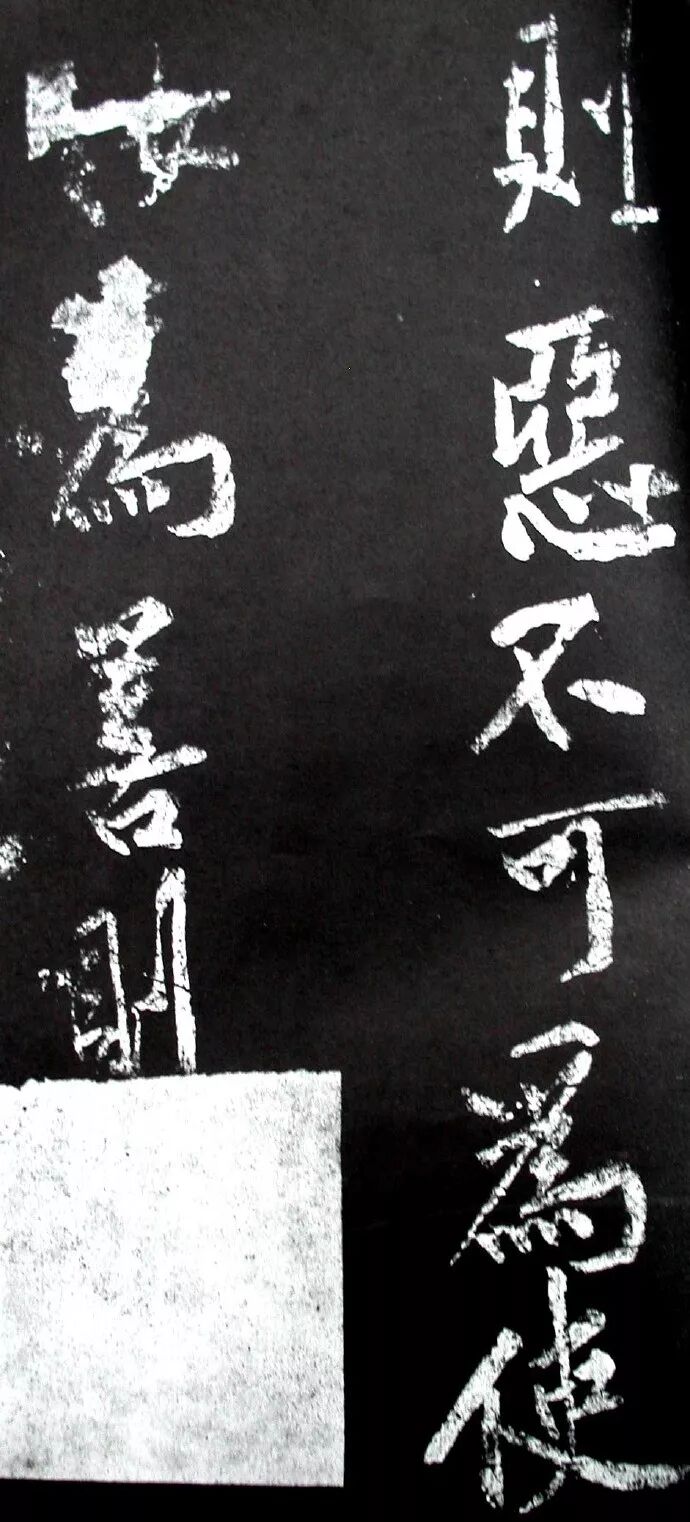 則惡不可為使
汝為善則